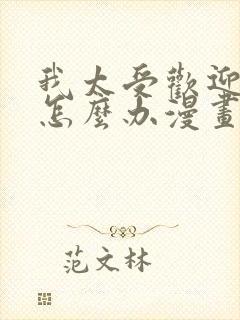 我太受歡迎
怎麼办漫畫
范文林